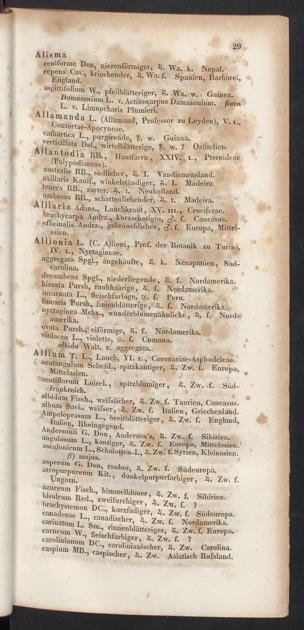 29
Alisma
reniforme Don, nierenförmiger, ♃. Wa. k. Nepal.
repens Cav., kriechender, ♃. Wa. f. Spanien, Barbarei,
England.
sagittifolium W., pfeilblätteriger, ♃. Wa. w. Guinea.
Damasonium L. v. Actinocarpus Damasonium.
L. v. Limnocharis Plumieri.
Allamanda L. (Allamand, Professor zu Leyden), V. 1.,
Contortae-Apocyneae.
cathartica L., purgirende, ♄. w. Guiana.
verticillata Desf., wirtelblätterige, ♄. w. ? Ostindien.
Allantodia RB., Hautfarrn, XXIV. 1., Pteroideae
(Polypodiaceae).
australis RB., südlicher, ♃. l. Vandiemensland.
axillaris Kaulf., winkelständiger, ♃. l. Madeira.
tenera RB., zarter, ♃. l. Neuholland.
umbrosa RB., schattenliebender, ♃. l. Madeira.
Alliaria Adans., Lauchkraut, XV. Cruciferae.
brachycarpa Andrz., kurzschotiges, ♂. f. Caucasus.
officinalis Andrz., gebräuchliches, ♂. f. Europa, Mittel-
asien.
Allionia L. (C. Allioni, Prof. der Botanik zu Turin),
IV. 1., Nyctagineae.
aggregata Spgl., angehäufte, ♃. k. Neuspanien, Süd-
carolina.
decumbens Spgl., niederliegende, ♃. f. Nordamerika.
hirsuta Pursh, rauhhaarige, ♃. f. Nordamerika.
incarnata L., fleischfarbige, ☉. f. Peru.
linearis Pursh, linienblätterige, ♃. f. Nordamerika.
nyctaginea Mchx., wunderblumenähnliche, ♃. f. Nord-
amerika.
ovata Pursh., eiförmige, ♃. f. Nordamerika.
violacea L., violette, ☉. f. Cumana.
albida Walt. v. aggregata.
Allium T. L., Lauch, VI. 1., Coronariae-Asphodeleae.
acutangulum Schrad., spitzkantiger, ♃. Zw. f. Europa,
Mittelasien.
acutiflorum Loisel., spitzblumiger, ♃. Zw. f. Süd-
frankreich.
albidum Fisch., weifslicher, ♃. Zw. f. Taurien, Caucasus.
album Savi., weifser, ♃. Zw. f. Italien, Griechenland.
Ampeloprasum L., breitblätteriger, ♃. Zw. f. England,
Italien, Rheingegend.
Andersonii G. Don, Anderson's, ♃. Zw. f. Sibirien.
angulosum L., kantiger, ♃. Zw. f. Europa, Mittelasien.
ascalonicum L., Schalotten-L., ♃. Zw. f. Syrien, Kleinasien.
β) majus.
asperum G. Don, rauher, ♃. Zw. f. Südeuropa.
atropurpureum Kit., dunkelpurpurfarbiger, ♃. Zw. f.
Ungarn.
azureum Fisch., himmelblauer, ♃. Zw. f. Sibirien.
bisulcum Red., zweifurchiger, ♃. Zw. f. ?
brachystemon DC., kurzfadiger, ♃. Zw. f. Südeuropa.
canadense L., canadischer, ♃. Zw. f. Nordamerika.
carinatum L. Sm., rinnenblätteriger, ♃. Zw. f. Europa.
carneum W., fleischfarbiger, ♃. Zw. f. ?
carolinianum DC., carolinianischer, ♃. Zw. Carolina.
caspium MB., caspischer, ♃. Zw. Asiatisch Rufsland.